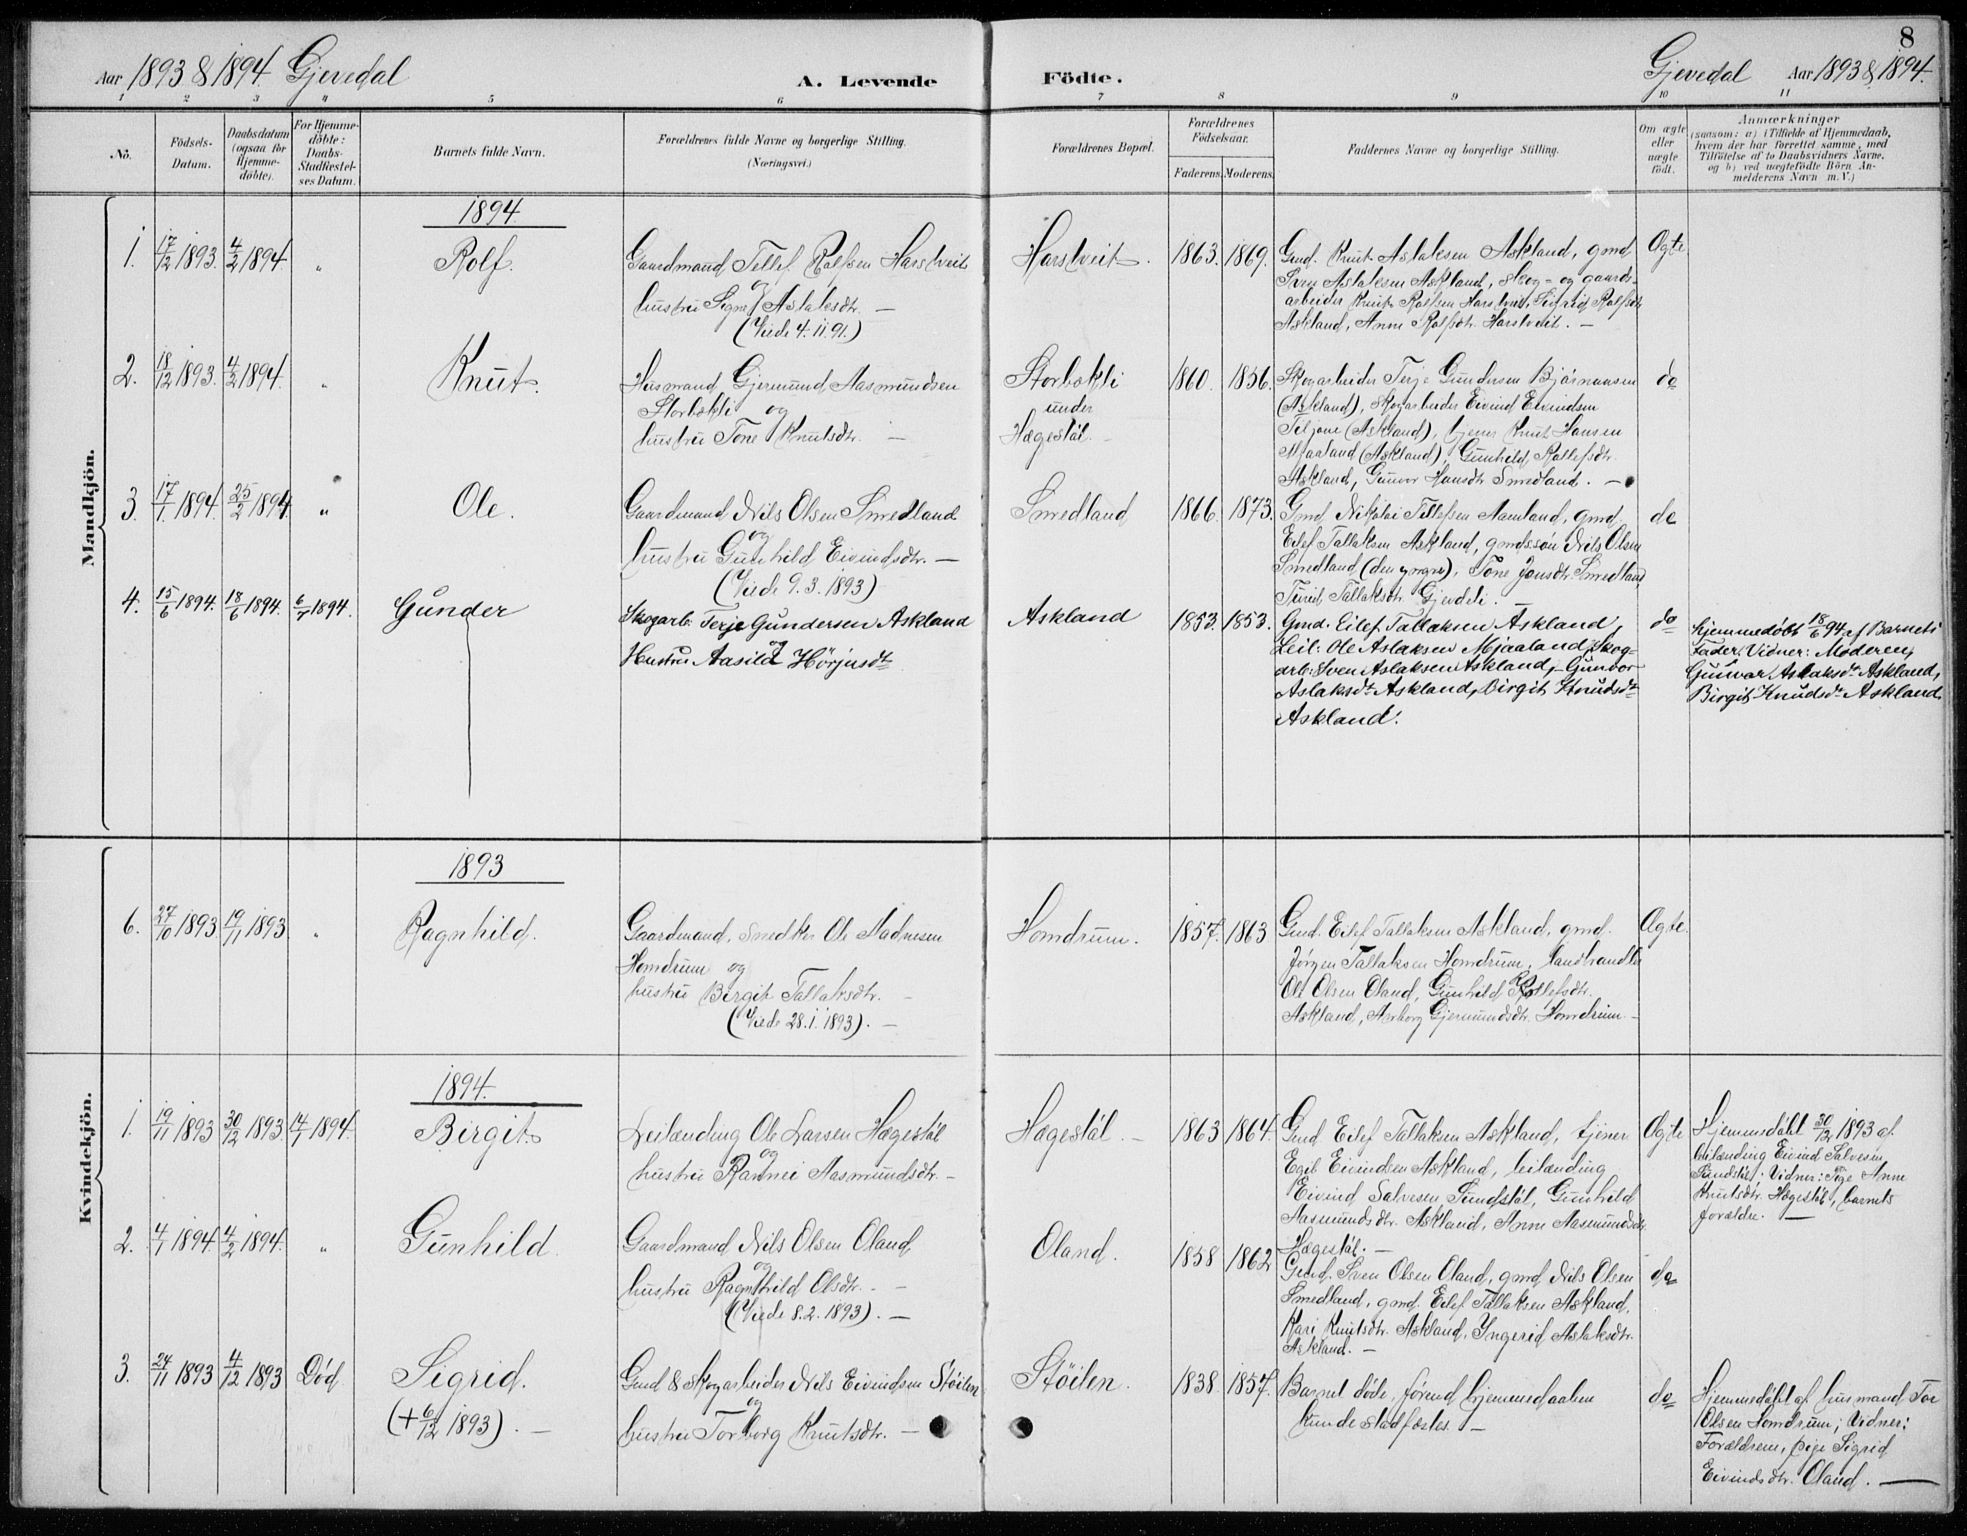 8
Aar 1893 & 1894. Gjevedal
A. Levende Födte.
Gjevedal Aar 1893 & 1894.
1 2 3 4 5 6 7 8 9 10 11
No.
Födsels-
Datum.
Daabsdatum
(ogsaa for
Hjemme-
døbte).
For Hjemme-
døbte:
Daabs-
Stadfæstel-
ses Datum.
Barnets fulde Navn.
Forældrenes fulde Navne og borgerlige Stilling.
(Næringsvei.)
Forældrenes Bopæl.
Forældrenes
Födselsaar.
Faderens. Moderens.
Faddernes Navne og borgerlige Stilling.
Om ægte
eller
uægte
født.
Anmærkninger
(saasom: a) i Tilfælde af Hjemmedaab,
hvem der har forrettet samme, med
Tilføielse af to Daabsvidners Navne.
og b) ved uægtefödte Börn An-
melderens Navn m. V.)
Mandkjön.
1894.
1. 17/12 1893. 4/2 1894. "
Rolf.
Gaardmand Tellef Rolfsen Harstveit
og
hustru Signe Aslaksdtr. —
(Viede 4.11.91.)
Harstveit.
1863. 1869.
Gmd. Knut Aslaksen Askland, gmd
Sven Aslaksen Askland, skog- og gaards-
arbeider Knut Rolfsen Harstveit, Sigrid Rolfsdtr
Askland, Anne Rolfsdtr. Harstveit. —
Ægte
2. 18/12 1893. 4/2 1894. "
Knut.
Husmand Gjermund Aasmundsen
Storbækli og
hustru Tone Knutsdtr. —
Storbækli
under
Hægestøl.
1860. 1856.
Skogarbeider Terje Gundersen
(Askland), skogarbeider Eivind Eivindsen
(Askland), tjener Knut Hansen
Maaland (Askland), Gunhild Rollefsdtr.
Askland, Gunvor Hansdtr Smedland. —
do
3. 17/1 1894. 25/2 1894. "
Ole.
Gaardmand Nils Olsen Smedland
og
hustru Gunhild Eivindsdtr. —
(Viede 9.3.1893)
Smedland
1866. 1873.
Gmd Nikolai Tellefsen Aamland, gmd
Eilef Tallaksen Askland, gmdssøn Nils Olsen
Smedland (den yngre), Tone Jonsdtr. Smedland
Turid Tallaksdtr. Gjevdeli. —
do
4. 15/6 1894. 18/6 1894. 6/7 1894.
Gunder
Skogarb. Terje Gundersen Askland
og
Hustru Aasild Hörjusdtr
Askland
1853. 1853.
Gmd. Eilef Tallaksen Askland,
Leil. Ole Aslaksen Mjaaland, Skog-
arb. Sven Aslaksen Askland, Gunvor
Aslaksdtr Askland, Birgit Knudsdtr
Askland.
do
Hjemmedøbt 18/6 94 af Barnets
Fader. Vidner: Moderen,
Gunvor Aslaksdtr Askland,
Birgit Knudsdtr Askland.
Kvindekjön.
1893
6. 27/10 1893 19/11 1893. "
Ragnhild.
Gaardmand, snedker Ole Aadnesen
Homdrum og
hustru Birgit Tallaksdtr. —
(Viede 28.1.1893). —
Homdrum.
1857. 1863
Gmd. Eilef Tallaksen Askland, gmd.
Jørgen Tallaksen Homdrum, landhandler
Ole Olsen Oland, Gunhild Rollefsdtr.
Askland, Aasborg Gjermundsdtr. Homdrum. —
Ægte.
1894.
1. 19/11 1893 30/12 1893. 14/1 1894.
Birgit.
Leilænding Ole Larsen Hægestøl
og
hustru Rannei Aasmundsdtr. —
Hægestøl. —
1863 1864.
Gmd Eilef Tallaksen Askland, tjener
Egil Eivindsen Askland, leilænding
Eivind Salvesen Sundstøl, Gunhild
Aasmundsdtr. Askland, Anne Aasmundsdtr.
Hægestøl. —
Ægte
Hjemmedøbt 30/12 1893 af
leilænding Eivind Salvesen
Sundstøl; Vidner: Pige Anne
Knutsdtr. Hægestøl, barnets
forældre. —
2. 4/1 1894. 4/2 1894. "
Gunhild
Gaardmand Nils Olsen Oland
og
hustru Ragnhild Olsdtr. —
(Viede 8.2.1893). —
Oland.
1858 1862
Gmd. Sven Olsen Oland, gmd Nils Olsen
Smedland, gmd. Eilef Tallaksen Askland,
Kari Knutsdtr. Askland, Yngerid Aslaksdtr.
Askland. —
do
3. 24/11 1893 4/12 1893 Død
Sigrid.
(+ 6/12 1893). —
Gmd & skogarbeider Nils Eivindsen Støilen
og
hustru Torborg Knutsdtr. —
Støilen.
1838. 1857.
Barnet døde, førend hjemmedaaben
kunde stadfæstes. —
do
Hjemmedøbt af husmand Tor
Olsen Homdrum; Vidner:
Forældrene, pige Sigrid
Eivindsdtr. Oland. —